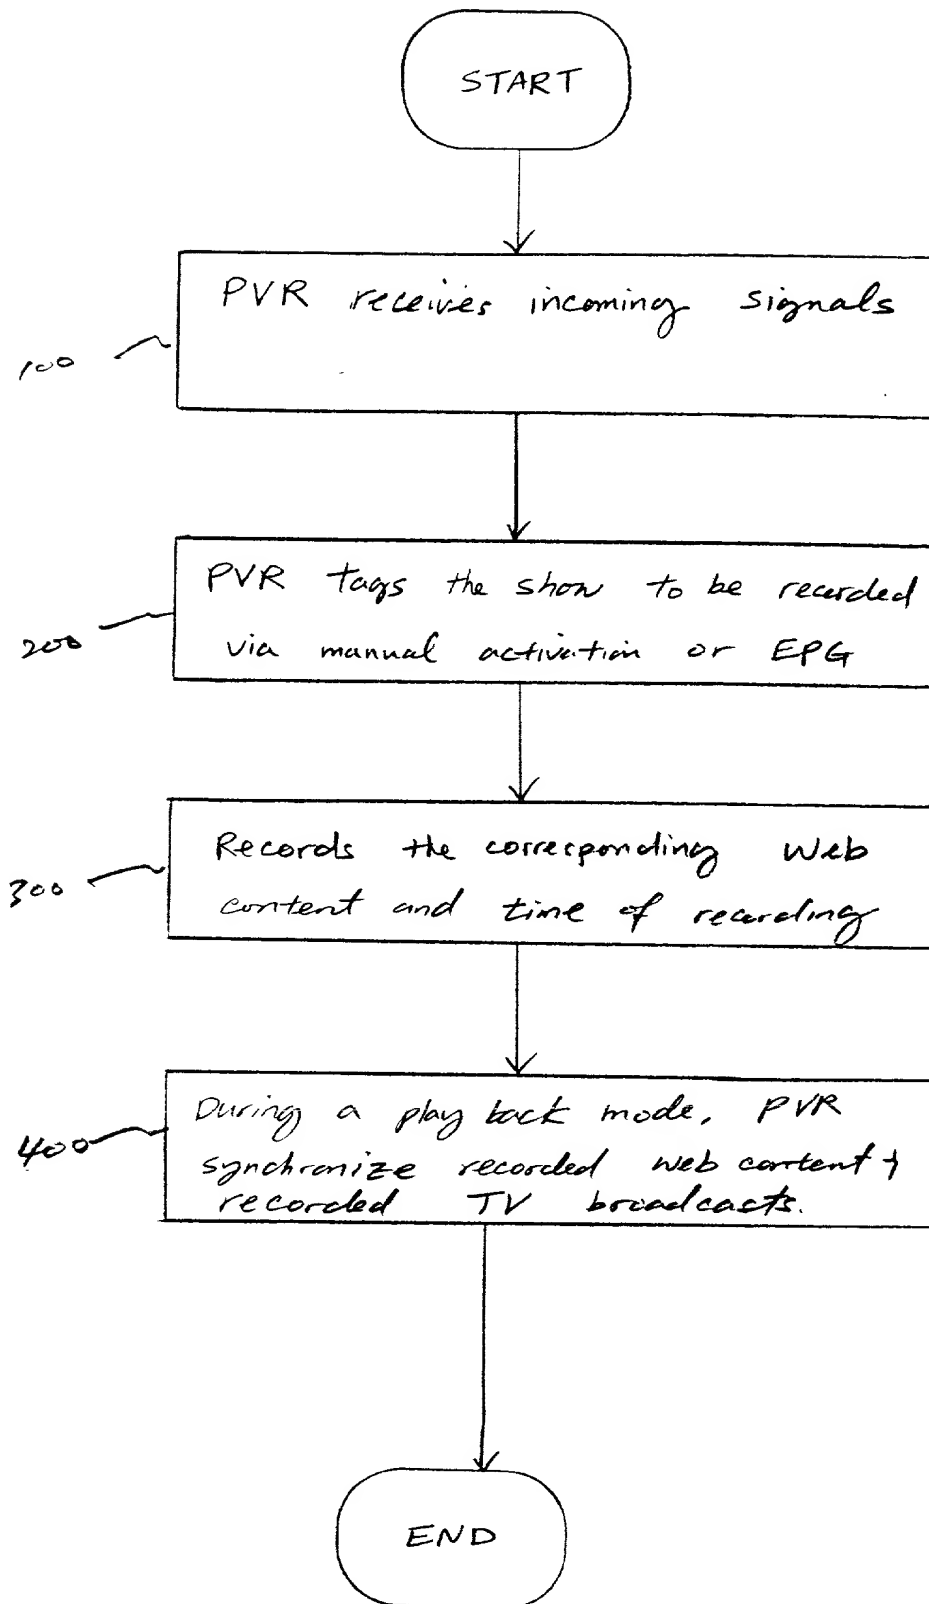 START
PVR receives incoming signals
100
PVR tags the show to be recorded
via manual activation or EPG
200
Records the corresponding Web
content and time of recording
300
During a play back mode, PVR
synchronize recorded web content +
recorded TV broadcasts.
400
END